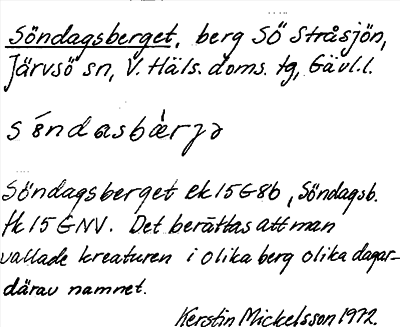 Söndagsberget, berg SÖ Stråsjön,
Järvsö sn, V. Häls. doms. tg, Gävl.l.
sóndasbàrjə
Söndagsberget ek15G8b, Söndagsb.
fk15GNV. Det berättas att man
vallade kreaturen i olika berg olika dagar–
därav namnet.
Kerstin Mickelsson 1972.